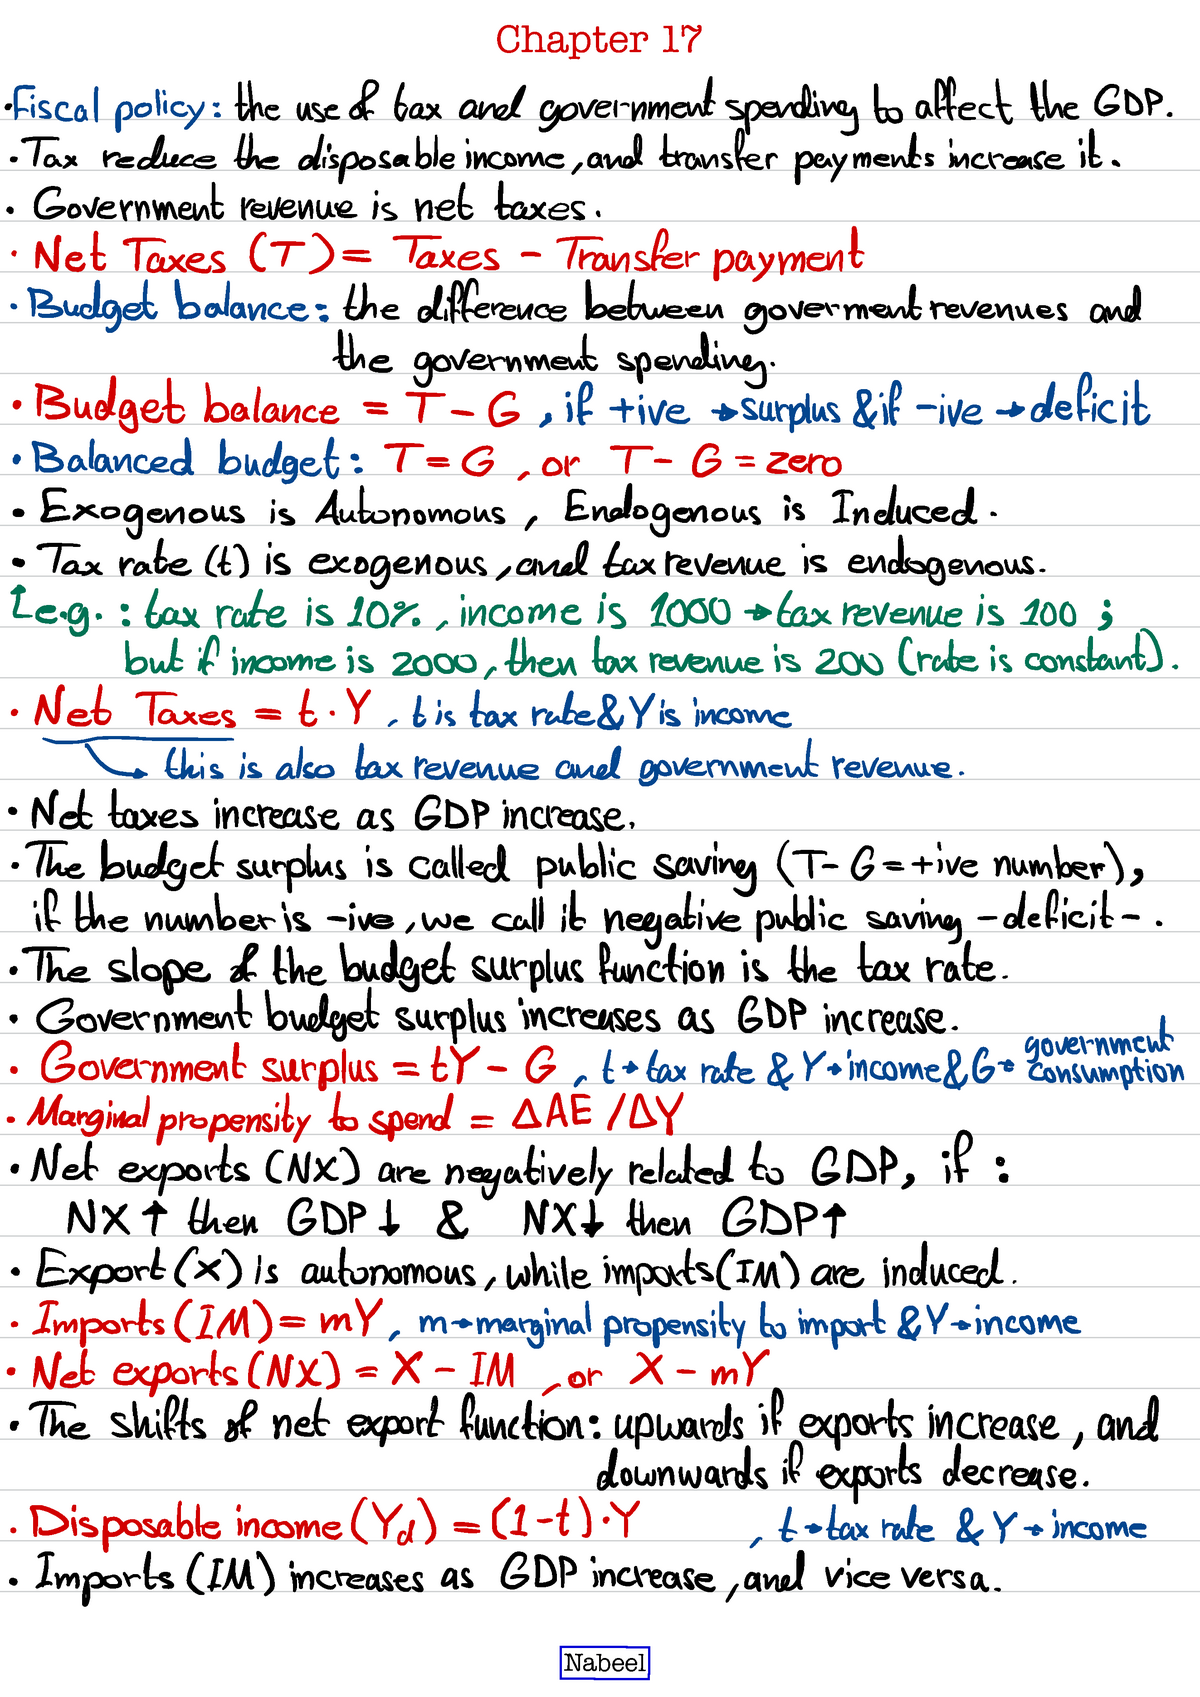 Chapter 17
•Fiscal policy: the use of tax and government spending to affect the GDP.
• Tax reduce the disposable income, and transfer payments increase it.
• Government revenue is net taxes.
• Net Taxes (T) = Taxes - Transfer payment
• Budget balance: the difference between goverment revenues and
the government spending.
• Budget balance = T - G , if +ive → surplus & if -ive → deficit
• Balanced budget: T = G , or T - G = zero
• Exogenous is Autonomous , Endogenous is Induced.
• Tax rate (t) is exogenous, and tax revenue is endogenous.
↑e.g. : tax rate is 10%, income is 1000 → tax revenue is 100 ;
but if income is 2000, then tax revenue is 200 (rate is constant).
• Net Taxes = t · Y , t is tax rate & Y is income
→ this is also tax revenue and government revenue.
• Net taxes increase as GDP increase.
• The budget surplus is called public saving (T- G = +ive number),
if the number is -ive, we call it negative public saving -deficit- .
• The slope of the budget surplus function is the tax rate.
• Government budget surplus increases as GDP increase.
• Government surplus = tY - G , t → tax rate & Y → income & G → government consumption
• Marginal propensity to spend = ΔAE / ΔY
• Net exports (NX) are negatively related to GDP, if :
NX ↑ then GDP ↓ & NX ↓ then GDP ↑
• Export (X) is autonomous, while imports (IM) are induced.
• Imports (IM) = mY , m → marginal propensity to import & Y → income
• Net exports (NX) = X - IM , or X - mY
• The shifts of net export function: upwards if exports increase, and
downwards if exports decrease.
• Disposable income (Yd) = (1-t)·Y , t → tax rate & Y → income
• Imports (IM) increases as GDP increase, and vice versa.
Nabeel